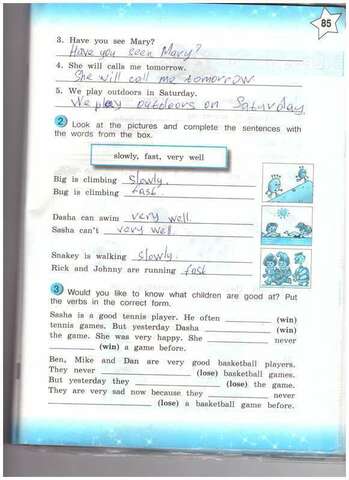 85
3. Have you see Mary?
Have you seen Mary?
4. She will calls me tomorrow.
She will call me tomorrow.
5. We play outdoors in Saturday.
We play outdoors on Saturday
2 Look at the pictures and complete the sentences with
the words from the box.
slowly, fast, very well
Big is climbing slowly.
Bug is climbing fast.
Dasha can swim very well.
Sasha can't very well.
Snakey is walking slowly.
Rick and Johnny are running fast
3 Would you like to know what children are good at? Put
the verbs in the correct form.
Sasha is a good tennis player. He often ________ (win)
tennis games. But yesterday Dasha ________ (win)
the game. She was very happy. She ________ never
________ (win) a game before.
Ben, Mike and Dan are very good basketball players.
They never ________ (lose) basketball games.
But yesterday they ________ (lose) the game.
They are very sad now because they ________ never
________ (lose) a basketball game before.